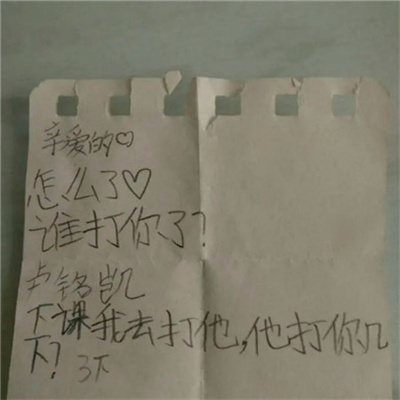 亲爱的♡
怎么了♡
谁打你了?
卢铭凯
下课我去打他,他打你几
下? 3下